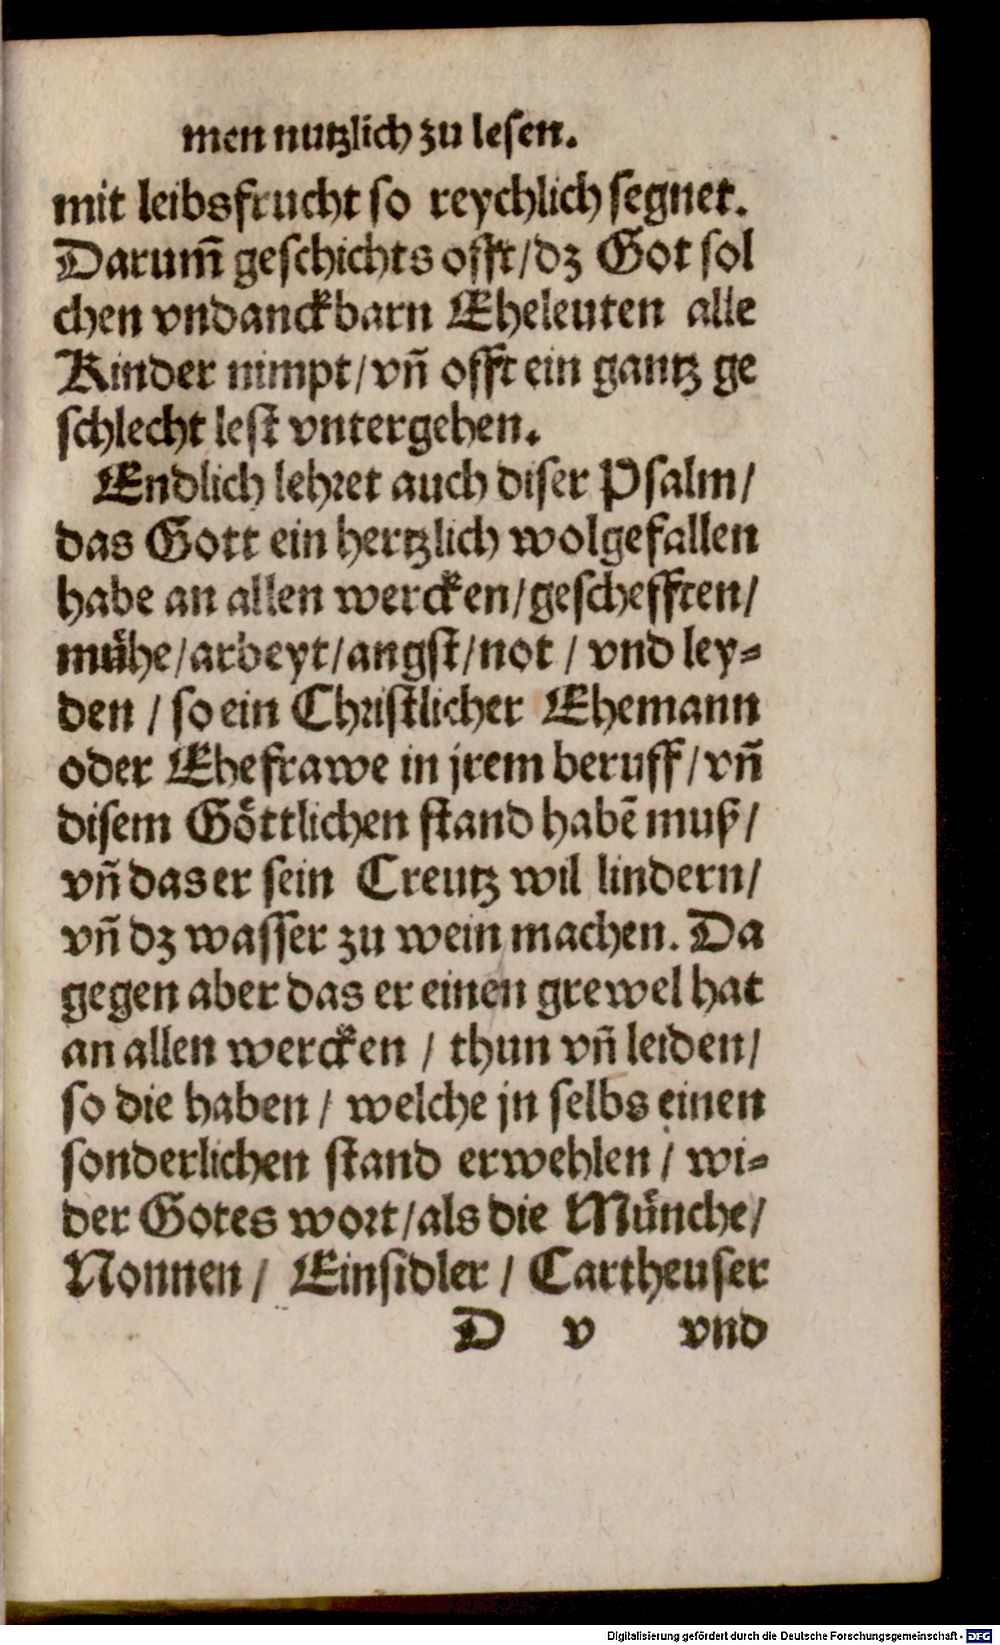 men nutzlich zu lesen.
mit leibsfrucht so reychlich segnet.
Darum̃ geschichts offt/dz Got sol
chen vndanckbarn Eheleuten alle
Kinder nimpt/vñ offt ein gantz ge
schlecht lest vntergehen.
Endlich lehret auch diser Psalm/
das Gott ein hertzlich wolgefallen
habe an allen wercken/geschefften/
mühe/arbeyt/angst/not / vnd ley-
den / so ein Christlicher Ehemann
oder Ehefrawe in jrem beruff/vñ
disem Göttlichen stand habẽ muß/
vñ das er sein Creutz wil lindern/
vñ dz wasser zu wein machen. Da
gegen aber das er einen grewel hat
an allen wercken / thun vñ leiden/
so die haben / welche jn selbs einen
sonderlichen stand erwehlen / wi-
der Gotes wort/als die Münche/
Nonnen / Einsidler / Cartheuser
D v vnd
Digitalisierung gefördert durch die Deutsche Forschungsgemeinschaft - DFG